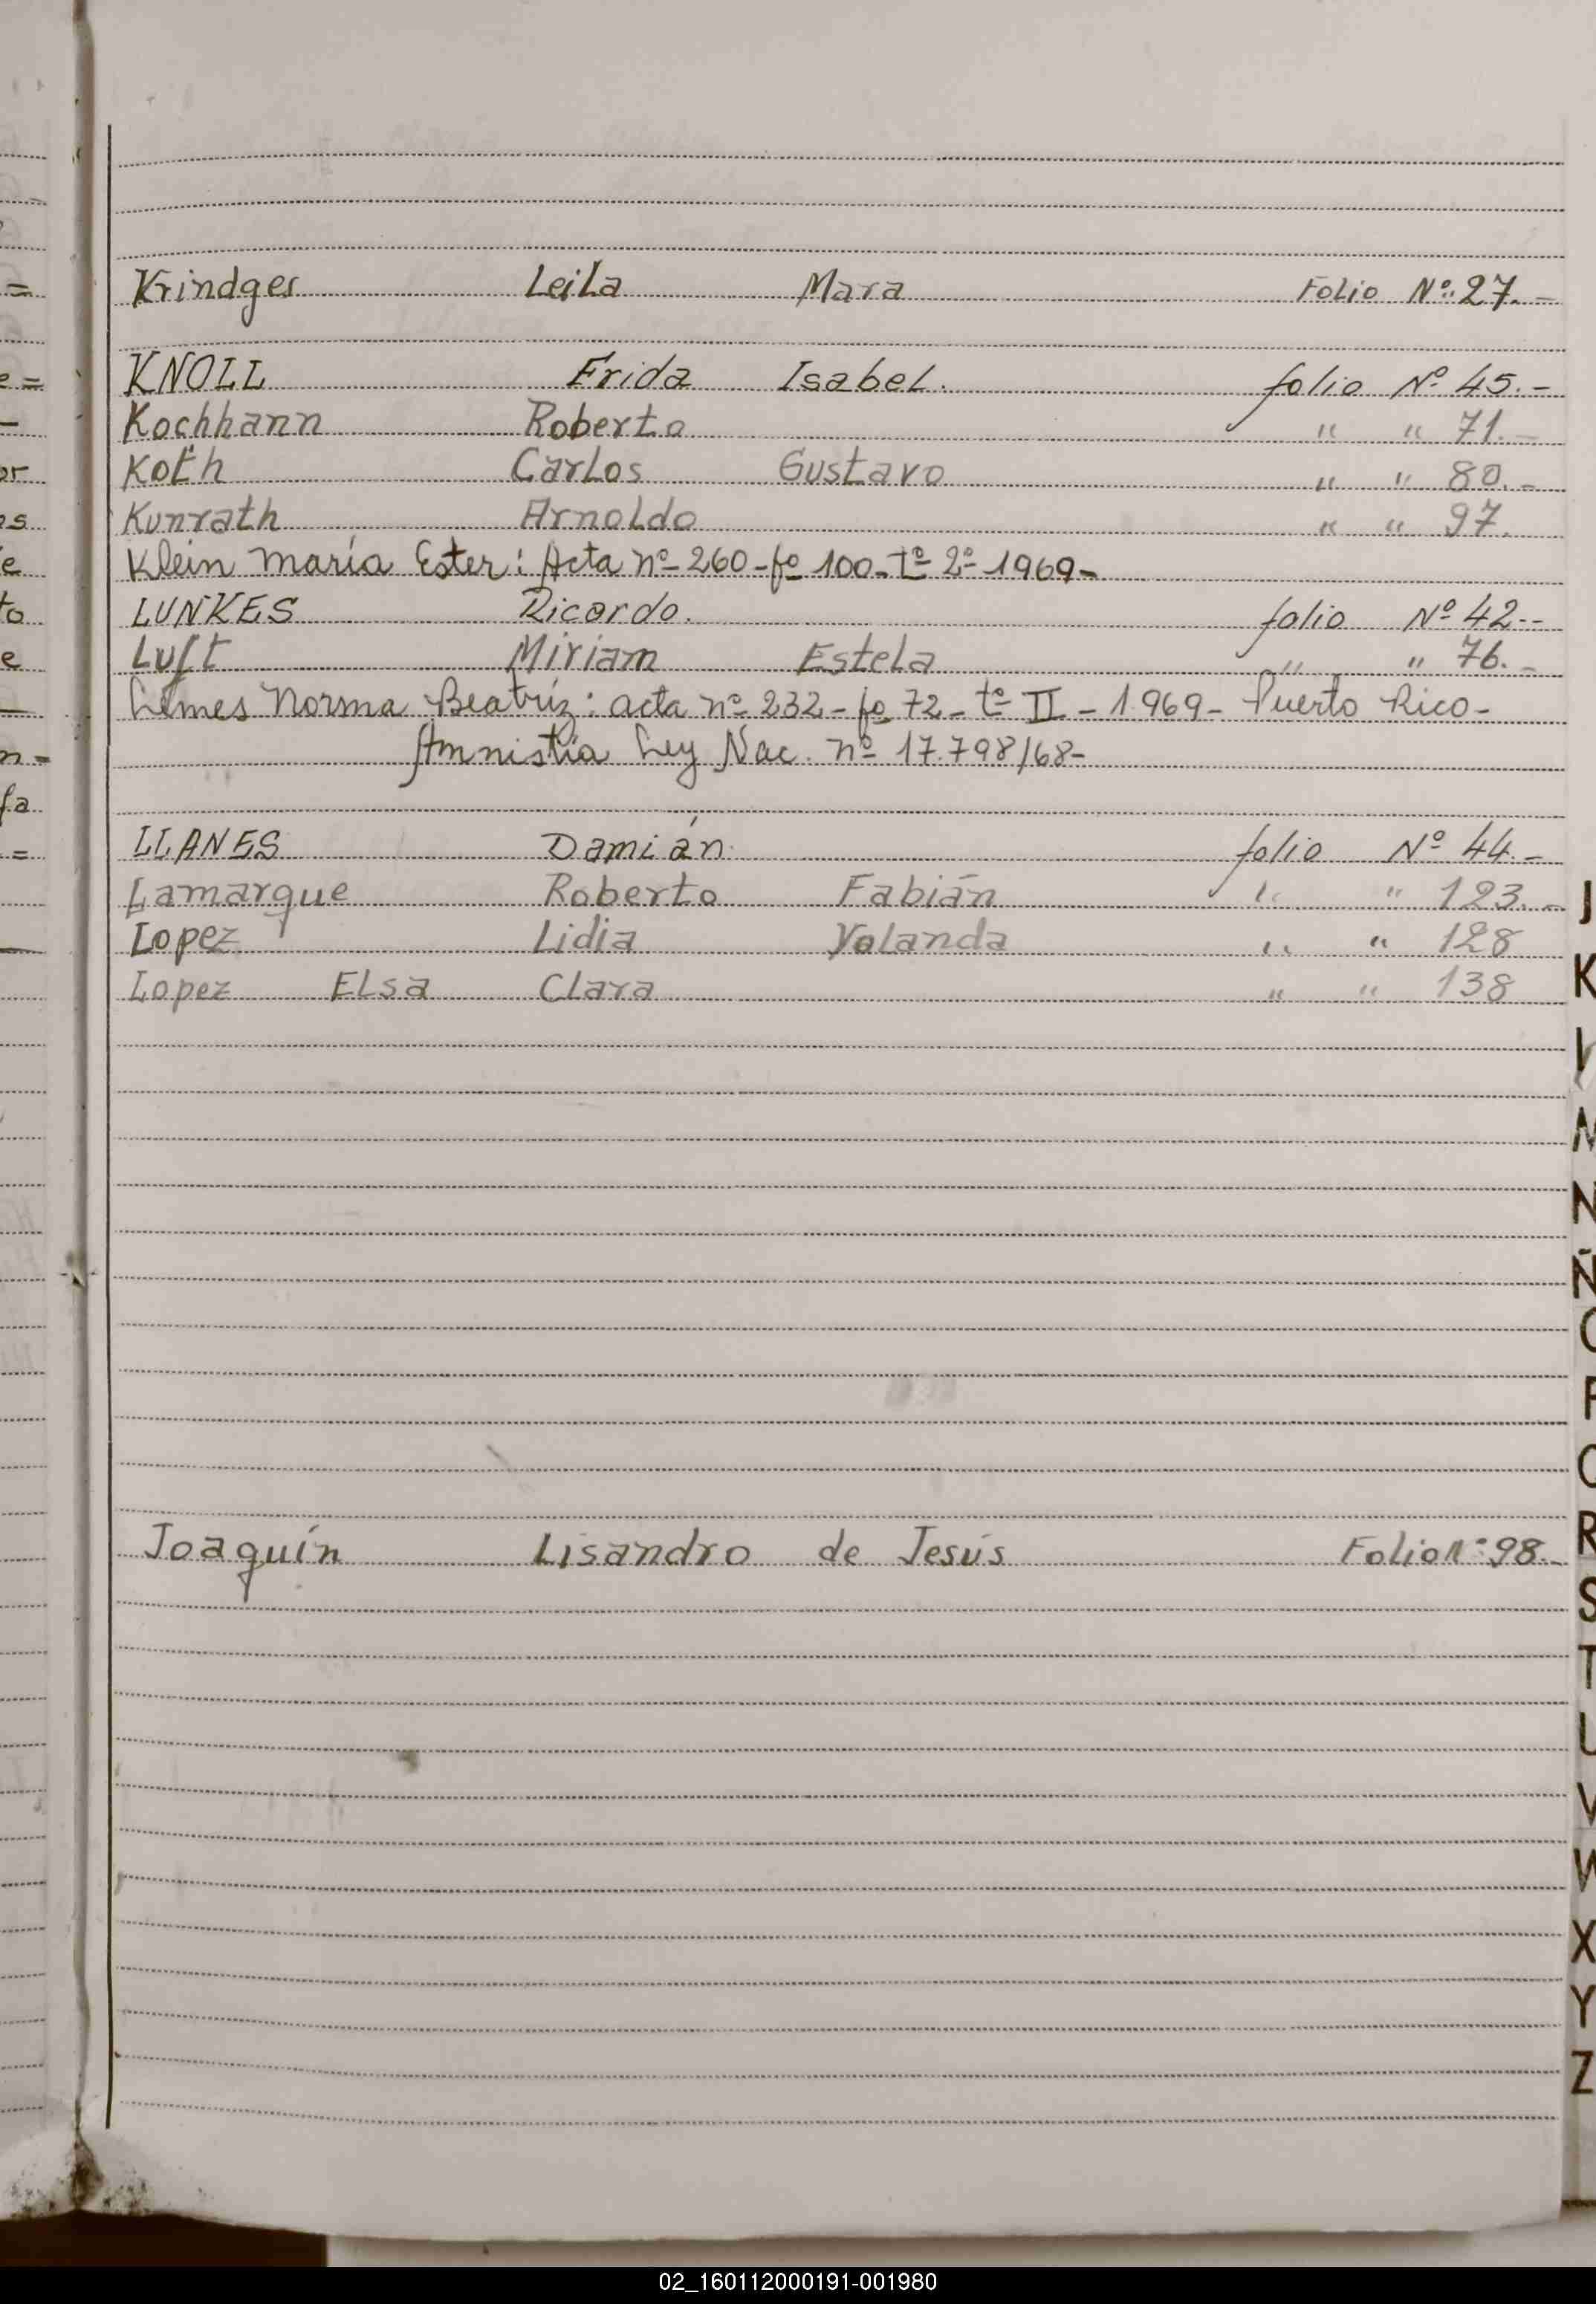 Krindges Leila Mara Folio Nº 27.-
KNOLL Frida Isabel. folio Nº 45.-
Kochhann Roberto " " 71.-
Koth Carlos Gustavo " " 80.-
Kunrath Arnoldo " " 97.
Klein María Ester: Acta nº 260-fº 100-tº 2º-1969-
LUNKES Ricardo. folio Nº 42--
Luft Miriam Estela " " 76.-
Lemes Norma Beatríz: acta nº 232-fº 72-tº II-1969- Puerto Rico-
Amnistía Ley Nac. nº 17.798/68-
LLANES Damián. folio Nº 44.-
Lamarque Roberto Fabián " " 123.-
Lopez Lidia Yolanda " " 128
Lopez Elsa Clara " " 138
Joaquín Lisandro de Jesús Folio Nº 98.-
J
K
M
N
Ñ
R
S
T
U
V
W
X
Y
Z
02_160112000191-001980